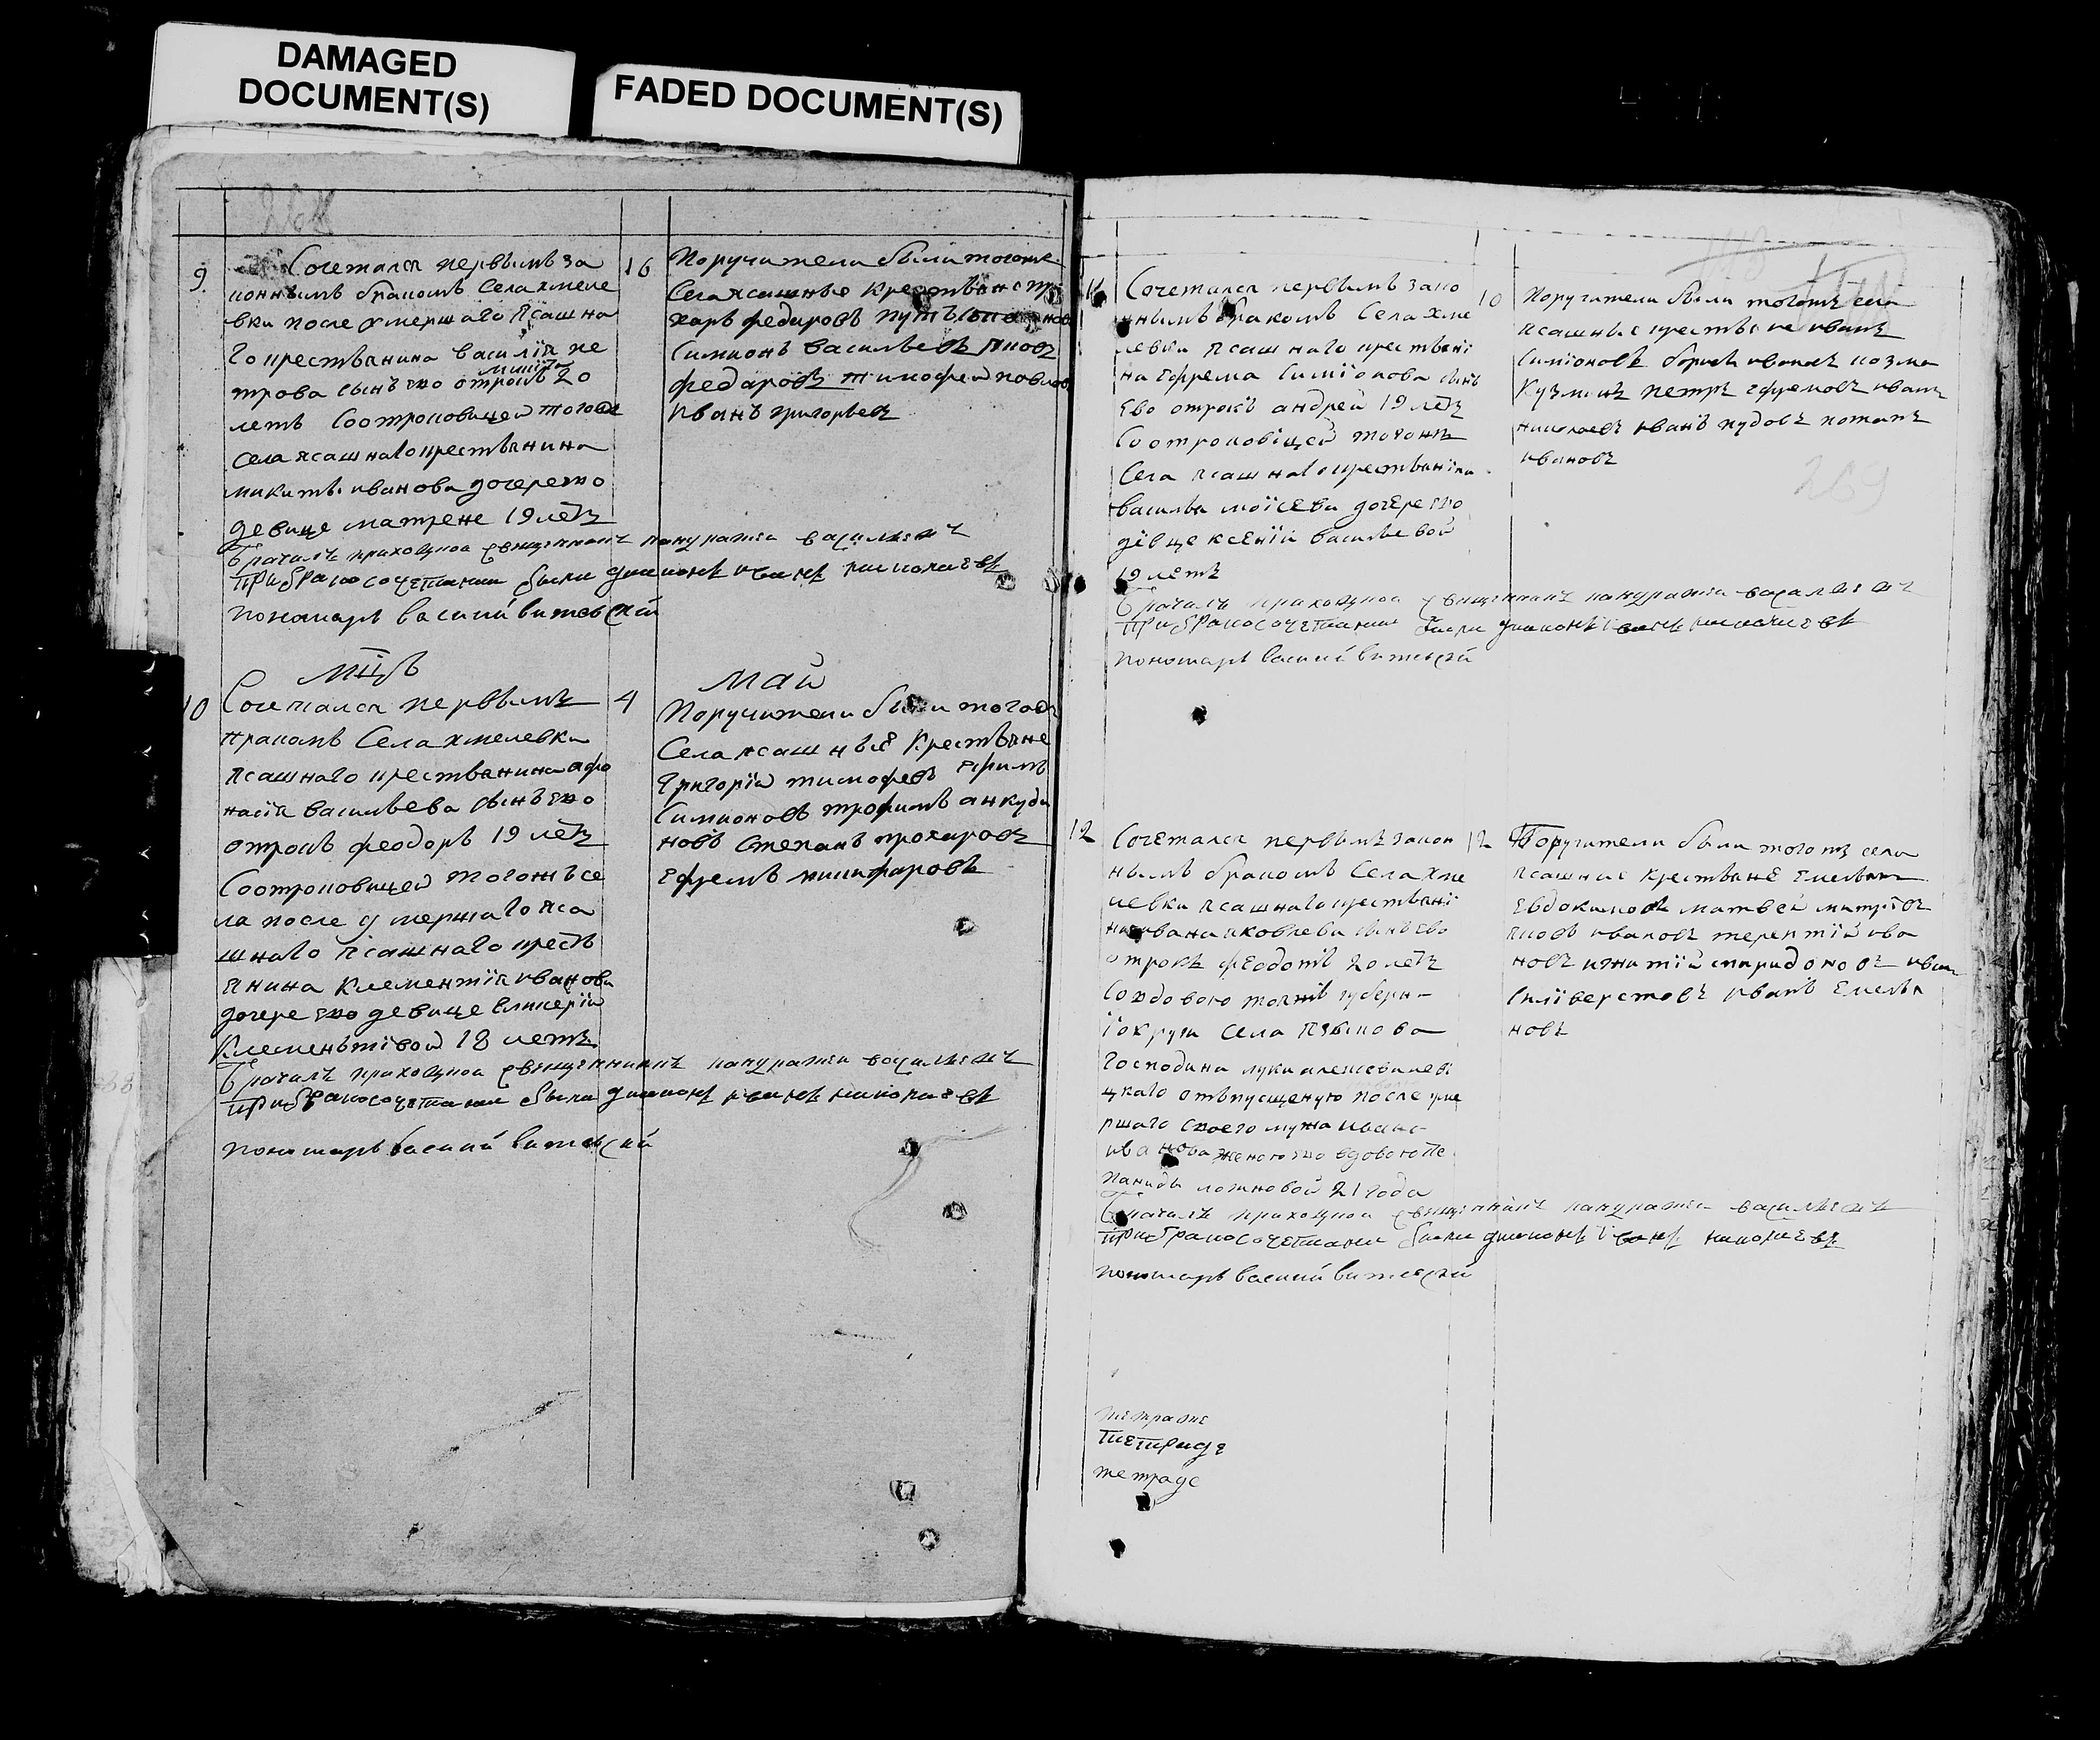 DAMAGED
DOCUMENT(S)
FADED DOCUMENT(S)
9
Сочетался первымъ за
коннымъ бракомъ Села хмеле
вки после умершаго Ясашна
го крестьянина василія пе
трова сынъ ево отрокъ 20
летъ Соотроковицей тогоже
села ясашнаго крестьянина
микиты иванова дочерею
девице матрене 19 летъ
16
Поручители были тогоже
Села ясашные крестьяне
федаровъ
Симионъ васильевъ яковъ
федаровъ тимофей
иванъ григорьевъ
Брачалъ приходной священникъ панкратей васильевъ
при бракосочетании были диаконъ иванъ николаевъ
пономарь василий витевский
мцъ
май
10
Сочетался первымъ
бракомъ Села хмелевки
ясашнаго крестьянина афо
насія васильева сынъ ево
отрокъ феодоръ 19 летъ
Соотроковицей тогожъ се
ла после умершаго яса
шнаго ясашнаго кресть
янина Клементія иванова
дочере ево девице гликеріи
Клеменьтивой 18 летъ
4
Поручители были тогожъ
Села ясашные Крестьяне
григорій тимофевъ ефимъ
Симионовъ трофимъ анкуди
новъ Степанъ прохаровъ
ефремъ никифаровъ
Брачалъ приходной священникъ панкратей васильевъ
при бракосочетании были диаконъ иванъ николаевъ
пономарь василий витевский
11
Сочетался первымъ зако
ннымъ бракомъ Села хме
левки ясашнаго крестьяни
на ефрема Симіонова сынъ
Ево отрокъ андрей 19 летъ
Соотроковицей тогожъ
Села ясашнаго крестьянина
васильи моісеева дочерею
девице ксеніи васильевой
19 летъ
10
Поручители были тогожъ села
ясашные крестьяне иванъ
Симіоновъ ивановъ козма
Кузминъ петръ ефремовъ иванъ
николаевъ иванъ пудовъ потапъ
ивановъ
259
Брачалъ приходной священникъ панкратей васильевъ
при бракосочетании были диаконъ іванъ николаевъ
пономарь василий витевский
12
Сочетался первымъ закон
нымъ бракомъ Села хме
левки ясашнаго крестьяни
на ивана яковлева сынъ ево
отрокъ феодотъ 20 летъ
Совдовою тояжъ губерн
іокруги Села языкова
господина луки
отъпущеную после уме
ршаго своего мужа ивана
иванова женою ево вдовою
21 года
12
Поручители были тогожъ села
ясашные крестьяне Емельянъ
Евдокимовъ матвей
яковъ ивановъ терентій ива
новъ игнатій спиридоновъ иванъ
Силіверстовъ иванъ Емелья
новъ
Брачалъ приходной священникъ панкратей васильевъ
при бракосочетании были диаконъ іванъ николаевъ
пономарь василий витевский
тетраде
тетраде